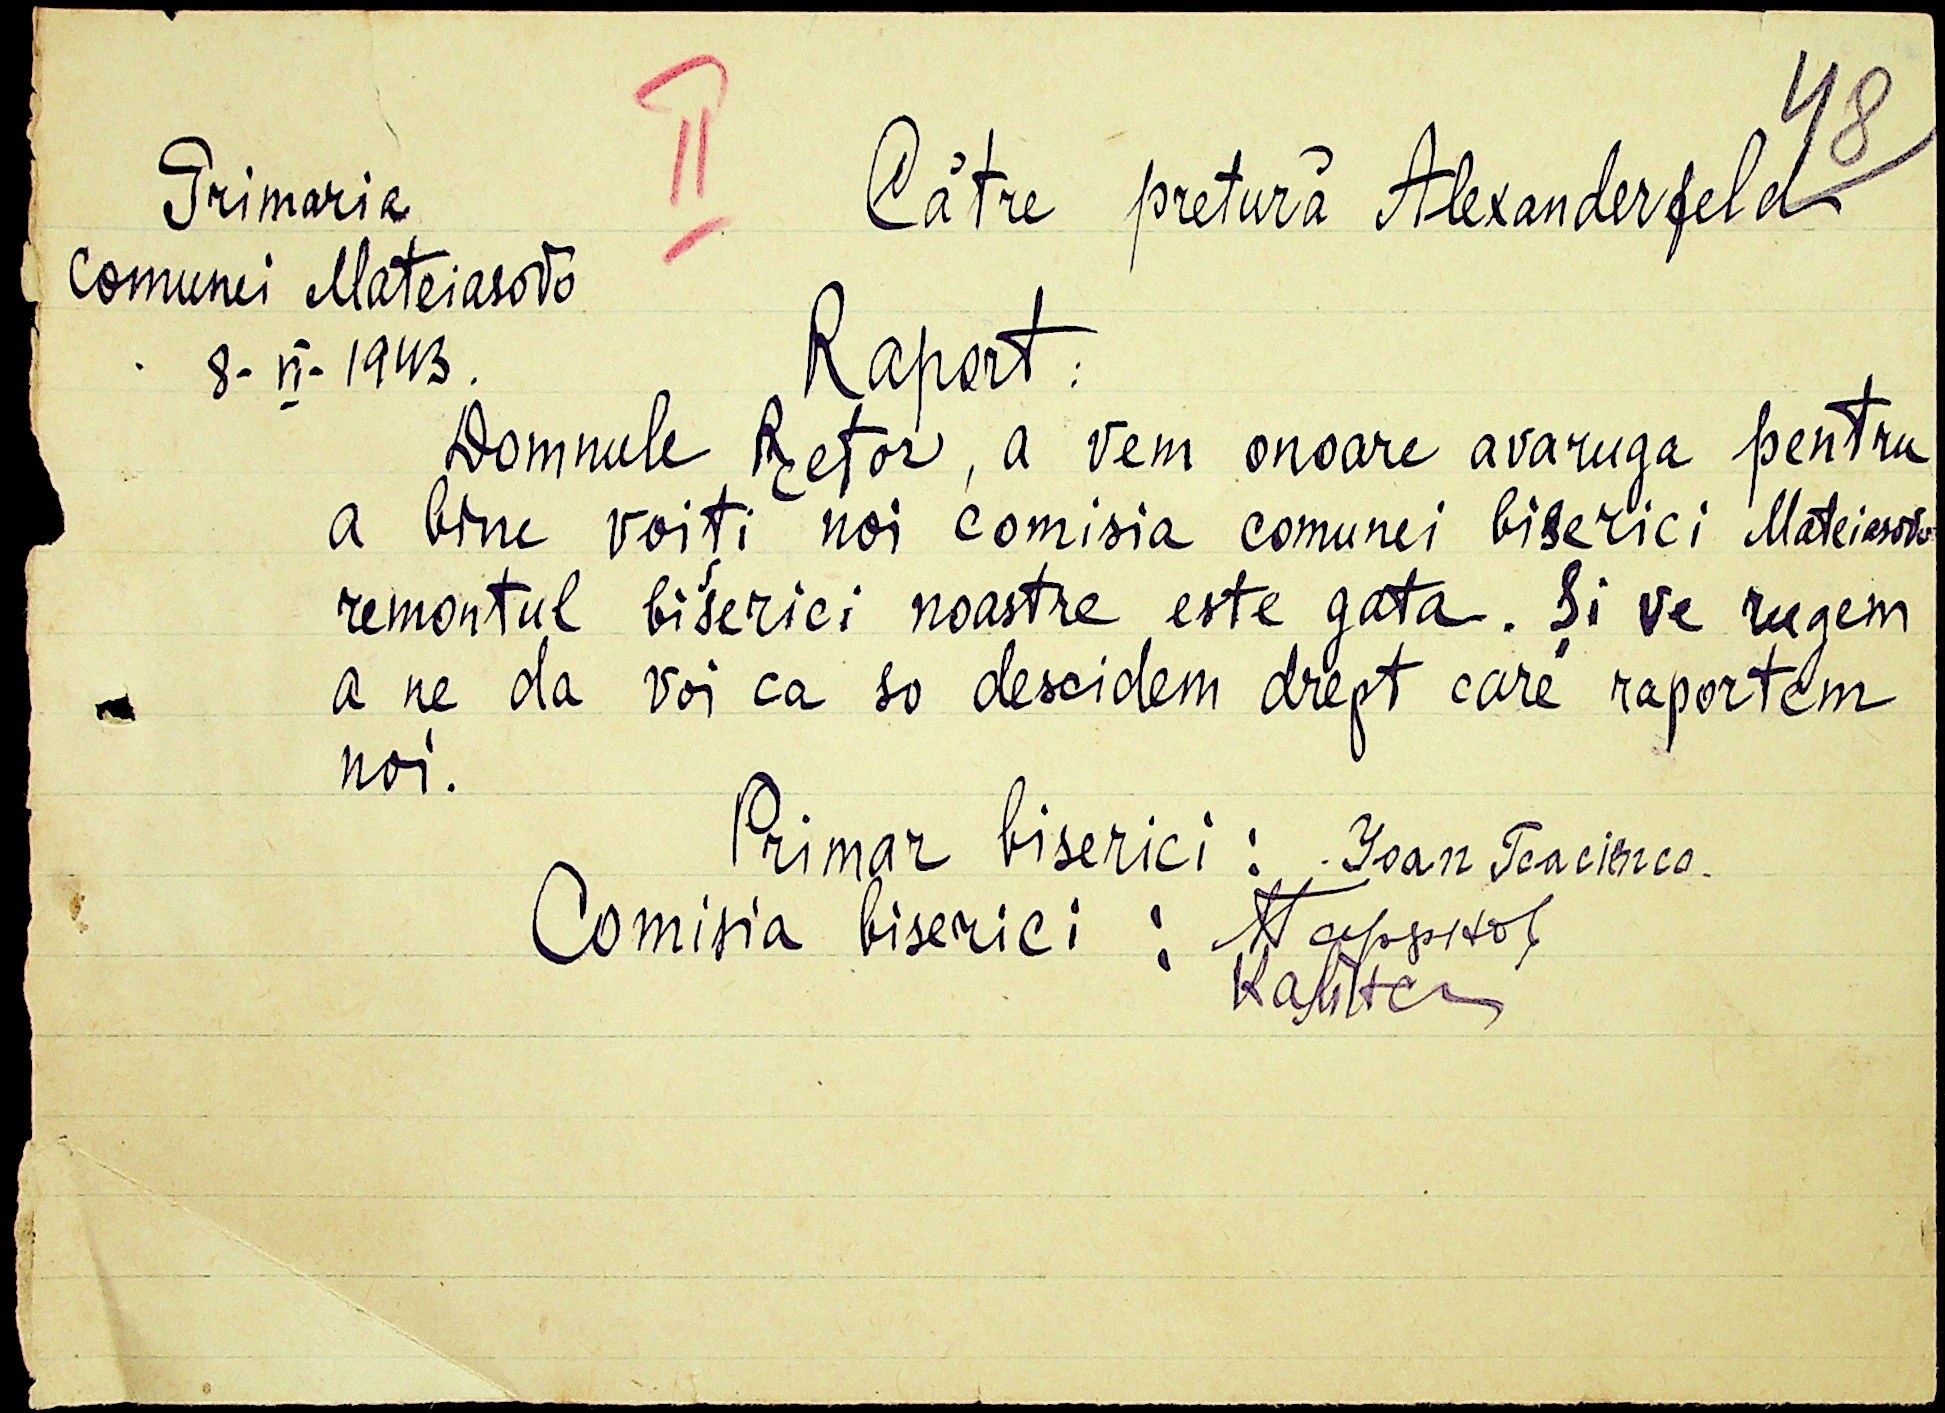 II
48
Primaria
Către pretură Alexanderfeld
comunei Mateiasovo
8-VI-1943.
Raport:
Domnule Rretor, a vem onoare avaruga pentru
a bine voiți noi comisia comunei biserici Mateiasovo
remontul bișerici noastre este gata. Și ve rugem
a ne da voi ca so descidem drept care raportem
noi.
Primar biserici: Ioan
Comisia biserici: